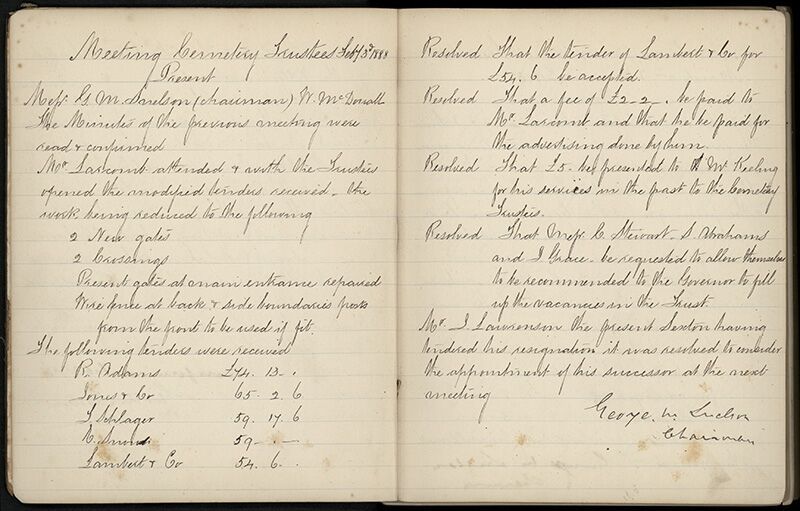 Meeting Cemetery Trustees Sept 3d 1888
Present
Messrs G. M. (chairman) W. McDonall
The Minutes of the previous meeting were
read & confirmed
Mr Larcomb attended & with the Trustees
opened the modified tenders received - the
work being reduced to the following
2 New gates
2 Crossings
Present gates at main entrance repaired
Wire fence at back & side boundaries posts
from the front to be used if fit.
The following tenders were received
R. Adams £74. 13 - .
Jones & Co 65. 2. 6
Schlager 59. 17. 6
59 - . -
Lambert & Co 54. 6. .
Resolved That the tender of Lambert & Co for
£54. 6 be accepted.
Resolved That a fee of £2-2-. be paid to
Mr. Larcomb and that he be paid for
the advertising done by him.
Resolved That £5 - be presented to Mr Keeling
for his services in the past to the Cemetery
Trustees.
Resolved That Messrs C. Stewart - S. Abrahams
and J Grace - be requested to allow themselves
to be recommended to the Governor to fill
up the vacancies in the Trust.
Mr. J. Lawrenson the present Sexton having
tendered his resignation it was resolved to consider
the appointment of his successor at the next
meeting
George. M.
Chairman